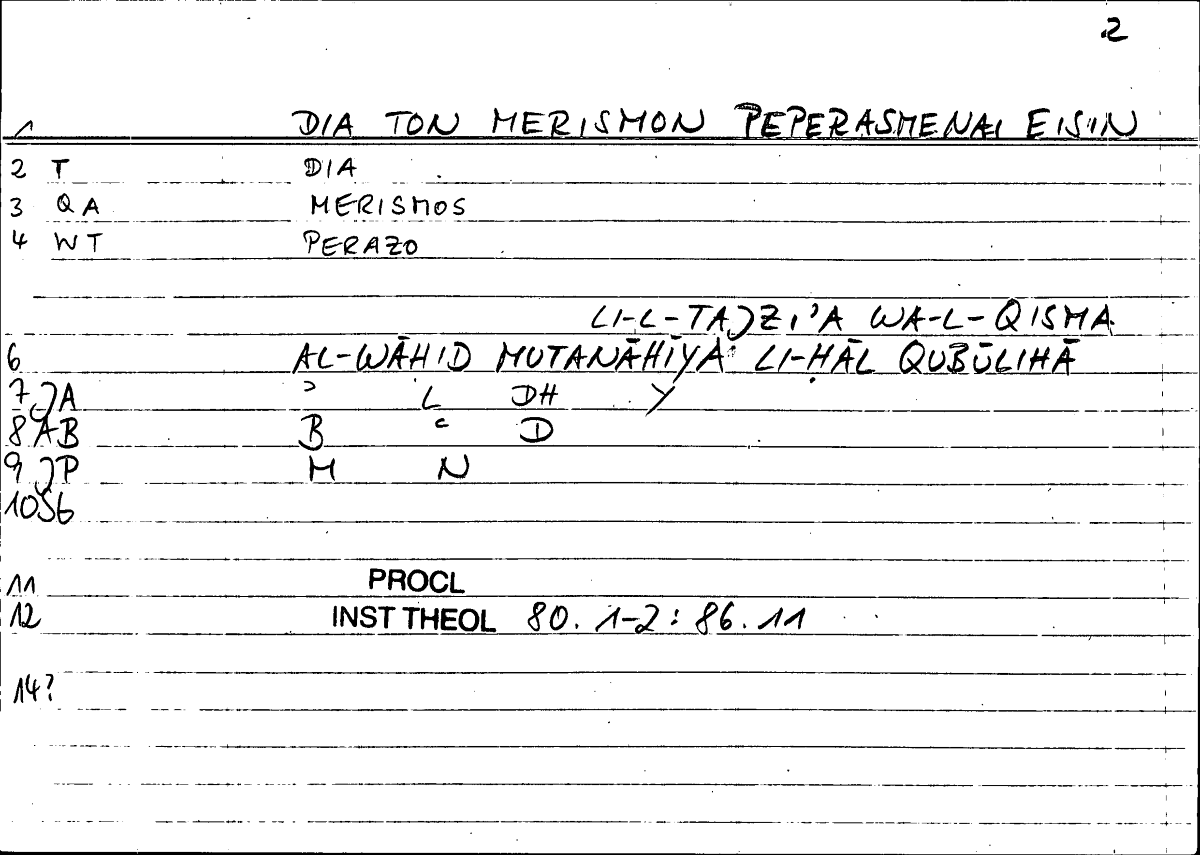 2
1 DIA TON MERISMON PEPERASMENAI EISIN
2 T DIA
3 QA MERISMOS
4 WT PERAZO
LI-L-TAJZI'A WA-L-QISMA
6 AL-WĀHID MUTANĀHĪYA LI-ḤĀL QUBŪLIHĀ
7 JA ʾ L DH Y
8 AB B ʿ D
9 JP M N
10 S6
11 PROCL
12 INST THEOL 80. 1-2 : 86. 11
14?